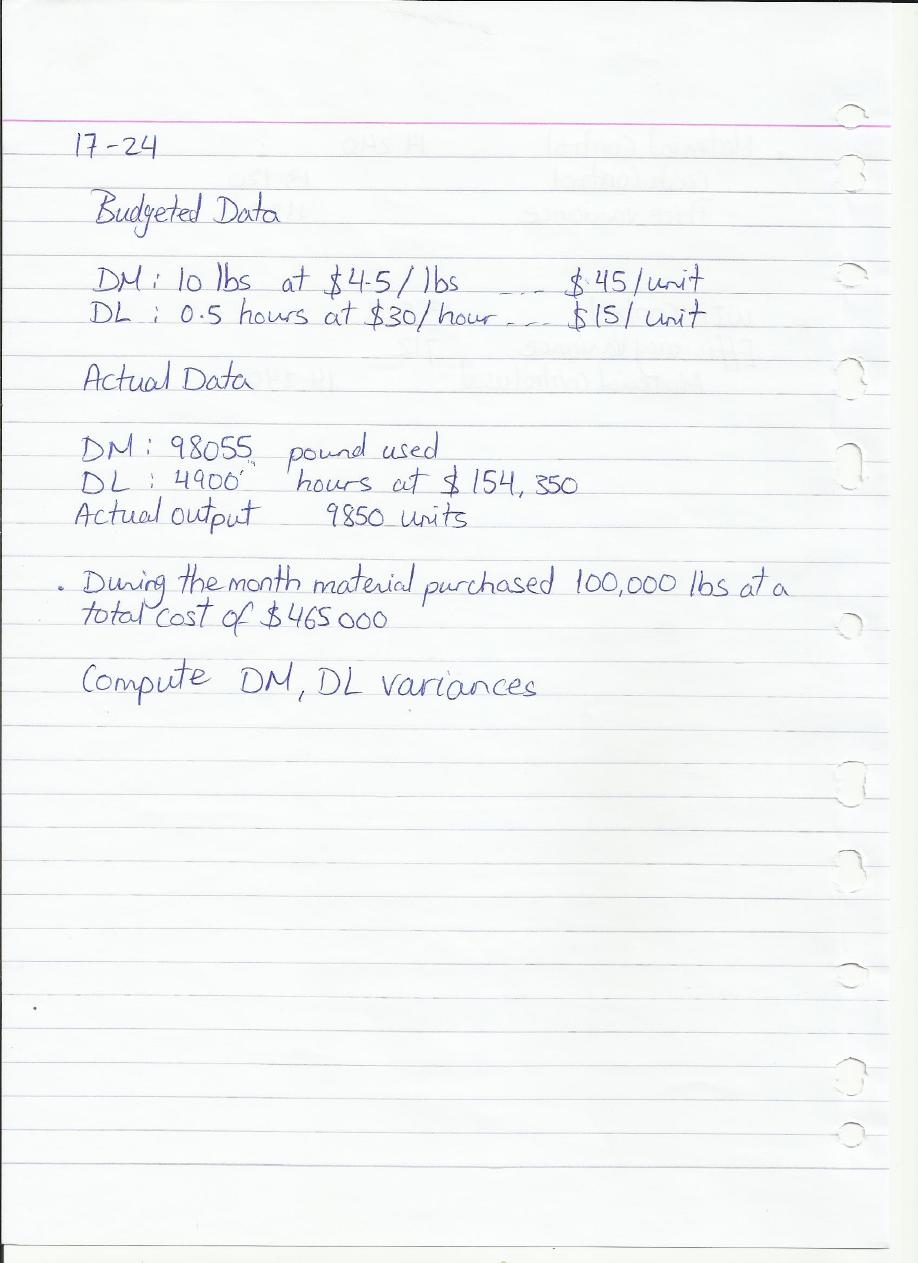 17-24
Budgeted Data
DM : 10 lbs at $4.5/lbs ---- $45/unit
DL : 0.5 hours at $30/hour --- $15/unit
Actual Data
DM : 98055 pound used
DL : 4900 hours at $154,350
Actual output 9850 units
. During the month material purchased 100,000 lbs at a
total cost of $465000
Compute DM, DL variances